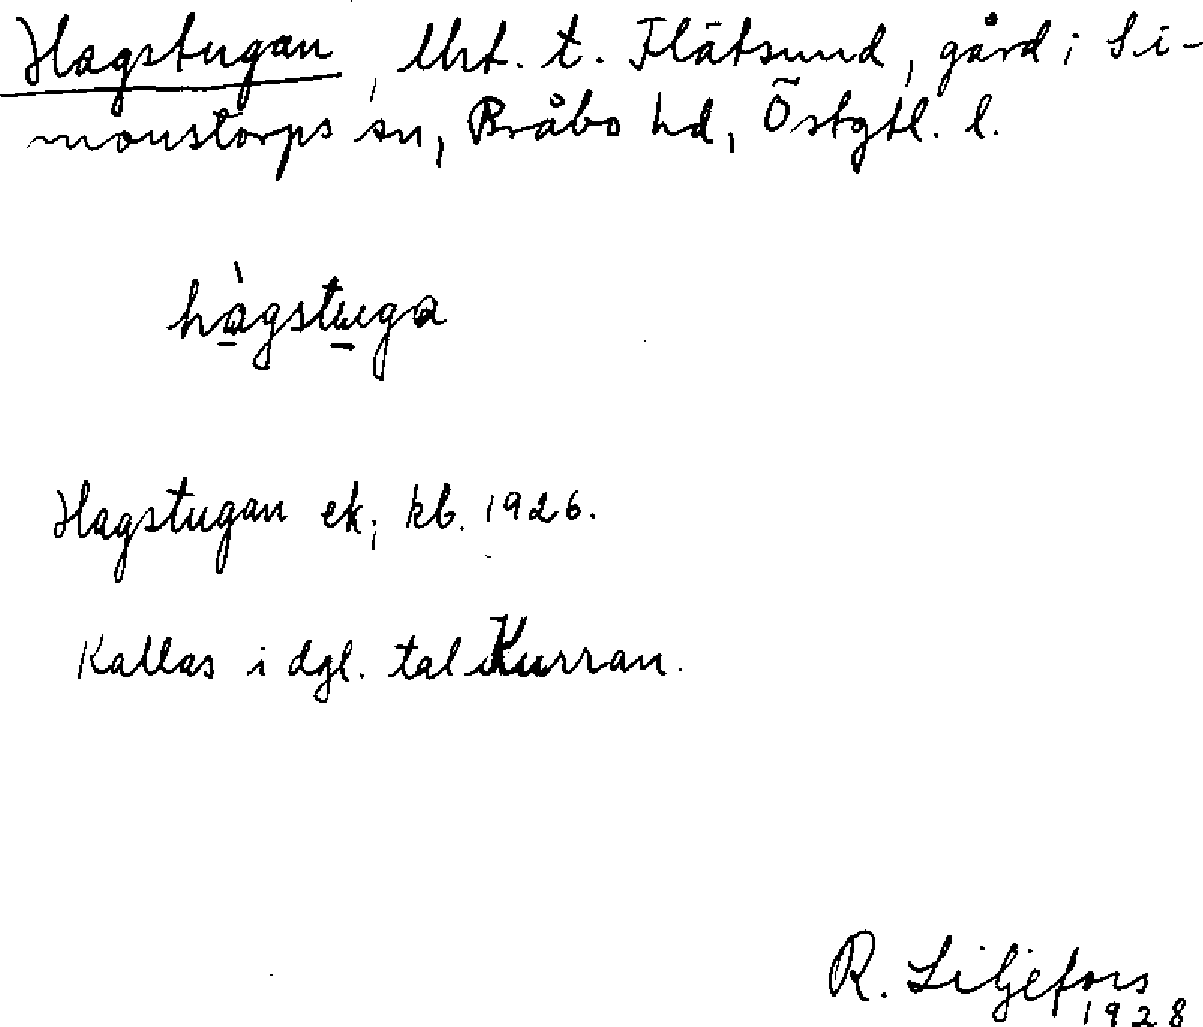 Hagstugan, lht. t. Flätsund, gård i Si-
monstorps sn, Bråbo hd, Östgtl. l.
hàgstuga
Hagstugan ek; kb. 1926.
Kallas i dgl. tal Kurran.
R. Liljefors
1928